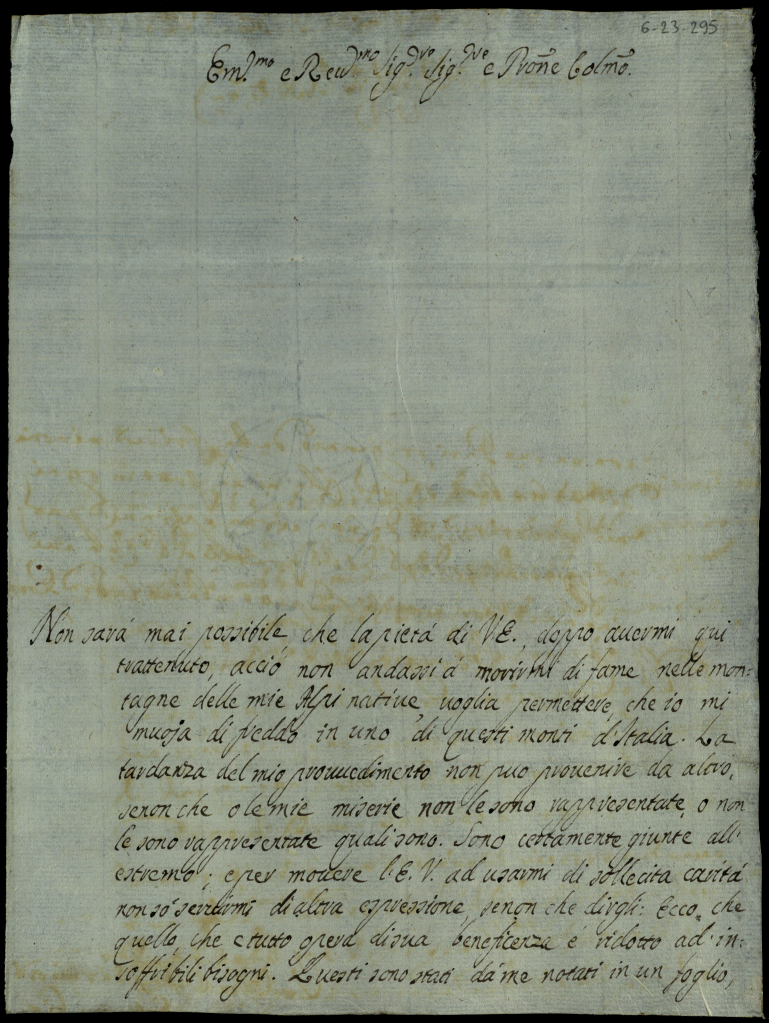 6-23-295
Em.mo e Reu.mo Sig.re Sig.re e Pron̄e Colm̄o.
Non sará mai possibile che la pietá di V.E., doppo auermi qui
trattenuto, acció non andassi á morirmi di fame nelle mon=
tagne delle mie Alpi natiue uoglia permettere, che io mi
muoja di freddo in uno di questi monti d'Italia. La
tardanza del mio prouuedimento non puo prouenire da altro,
senon che o le mie miserie non le sono rappresentate, o non
le sono rappresentate quali sono. Sono certamente giunte all'
estremo; e per mouere l'E.V. ad usarmi di sollecita caritá
non só seruirmi di altra espressione, senon che dirgli: Ecco, che
quello, che e tutto opera di sua beneficenza é ridotto ad in=
soffribili bisogni. Questi sono stati dá me notati in un foglio,